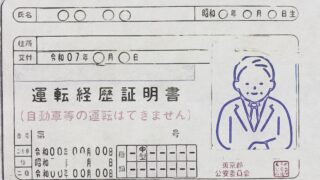 氏名 ○○ ○○ 昭和○年○月○日生
住所
交付 令和07年○月○日
運転経歴証明書
(自動車等の運転はできません)
第 号
令和00年00月00日
昭和 年 月 日
令和00年00月00日
種類
公安委員会